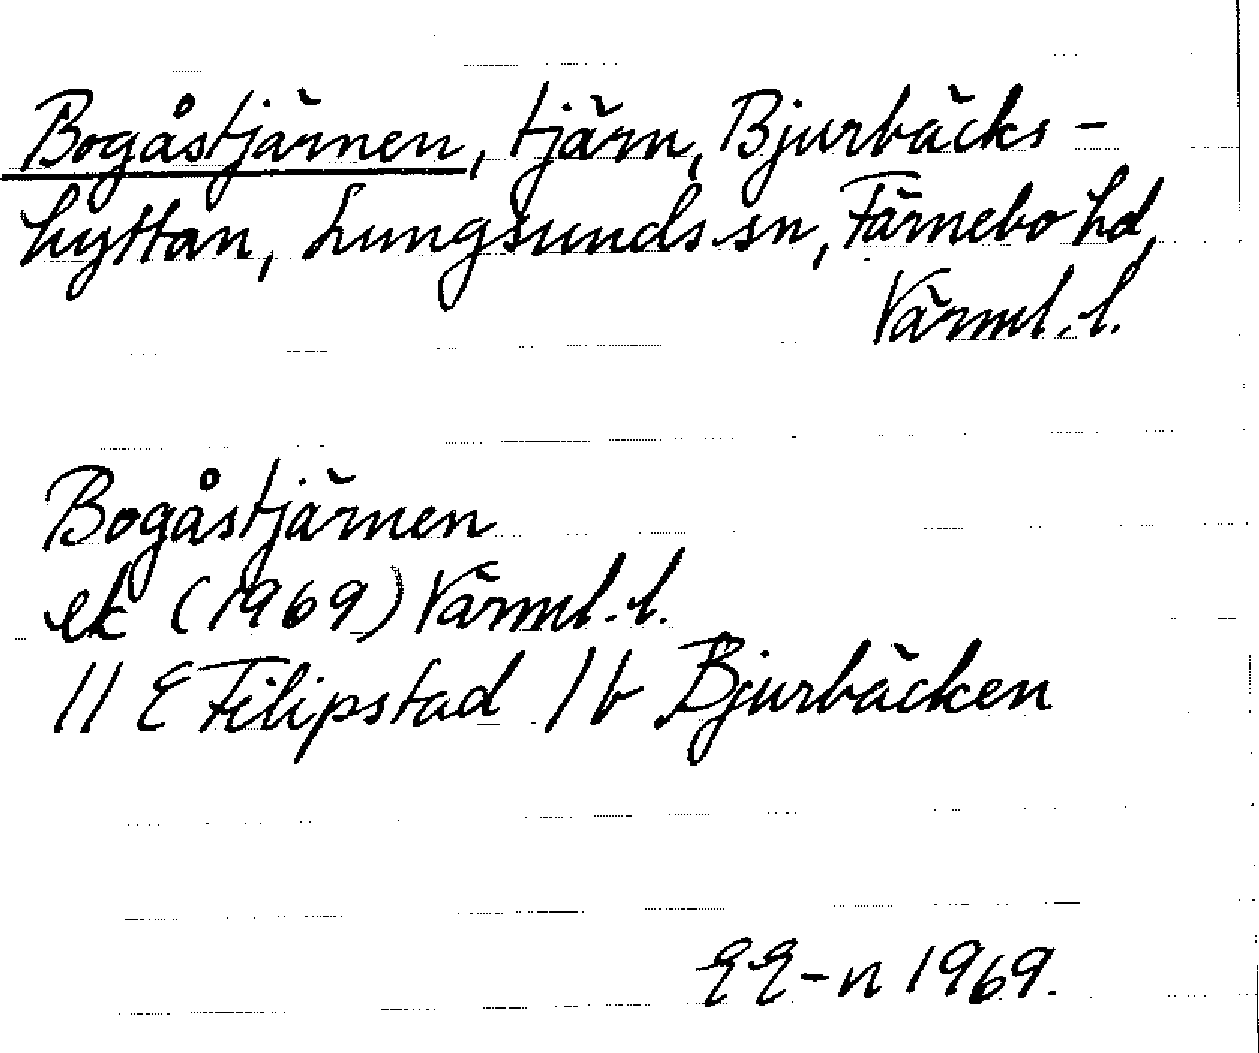 Bogåstjärnen, tjärn, Bjurbäcks-
hyttan, Lungsunds sn, Färnebo hd,
Värml. l.
Bogåstjärnen
ek (1969) Värml. l.
11 E Filipstad 1 b Bjurbäcken
EE-n 1969.